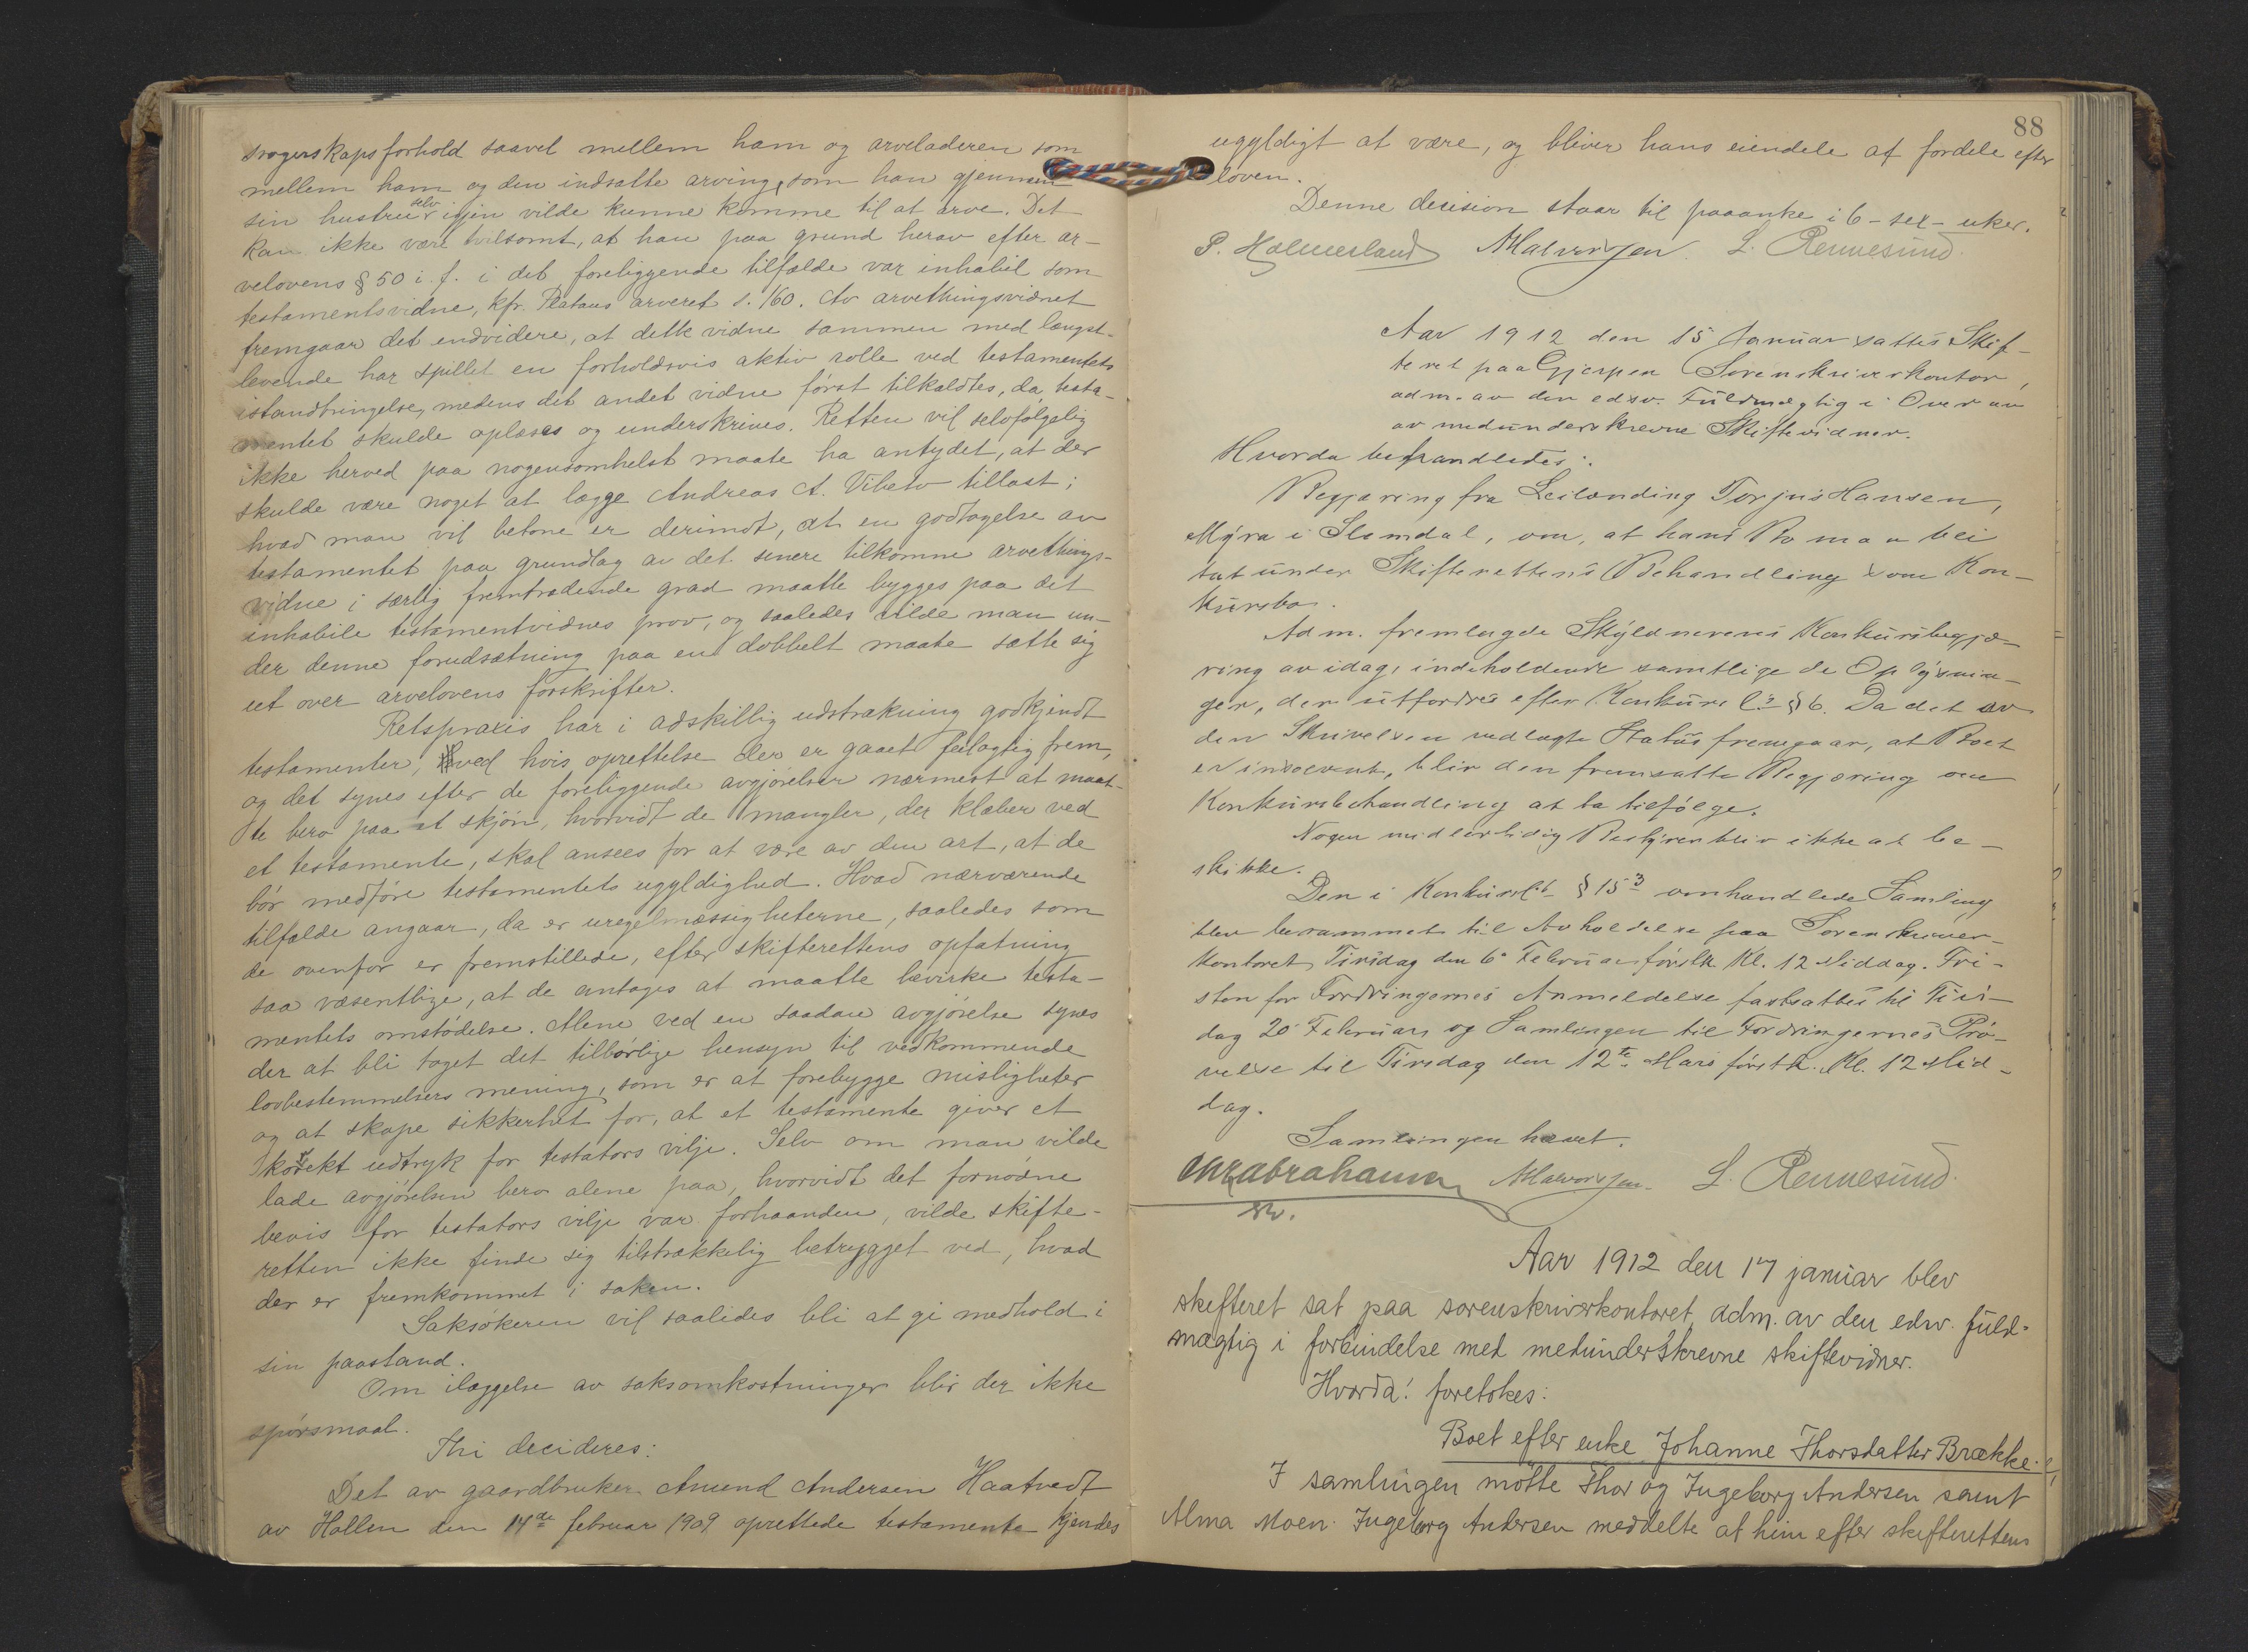 svogerskapsforhold saavel mellem ham og arveladeren som
mellem ham og den indsatte arving, som han gjennem
sin hustru selv igjen vilde kunne komme til at arve. Det
kan ikke være tvilsomt, at han paa grund herav efter ar-
velovens § 50 i. f. i det foreliggende tilfælde var inhabil som
testamentsvidne, kfr. Platous arveret s. 160. Av arvethingsvidnet
fremgaar det endvidere, at dette vidne sammen med længst-
levende har spillet en forholdsvis aktiv rolle ved testamentets
istandbringelse, medens det andet vidne først tilkaldtes, da testa-
mentet skulde oplæses og underskrives. Retten vil selvfølgelig
ikke herved paa nogensomhelst maate ha antydet, at der
skulde være noget at lægge Andreas A. Vibeto tillast;
hvad man vil betone er derimot, at en godtagelse av
testamentet paa grundlag av det senere tilkomne arvethings-
vidne i særlig fremtrædende grad maatte bygges paa det
inhabile testamentvidnes prov, og saaledes vilde man un-
der denne forudsætning paa en dobbelt maate sætte sig
ut over arvelovens forskrifter.
Retspraxis har i adskillig udstrækning godkjendt
testamenter, ved hvis oprettelse der er gaaet feilagtig frem,
og det synes efter de foreliggende avgjørelser nærmest at maat-
te bero paa et skjøn, hvorvidt de mangler, der klæber ved
et testamente, skal ansees for at være av den art, at de
bør medføre testamentets ugyldighed. Hvad nærværende
tilfælde angaar, da er uregelmæssigheterne, saaledes som
de ovenfor er fremstillede, efter skifterettens opfatning
saa væsentlige, at de antages at maatte bevirke testa-
mentets omstødelse. Alene ved en saadan avgjørelse synes
der at bli taget det tilbørlige hensyn til vedkommende
lovbestemmelsers mening, som er at forebygge misligheter
og at skape sikkerhet for, at et testamente giver et
korrekt udtryk for testators vilje. Selv om man vilde
lade avgjørelsen bero alene paa, hvorvidt det fornødne
bevis for testators vilje var forhaanden, vilde skifte-
retten ikke finde sig tilstrækkelig betrygget ved, hvad
der er fremkommet i saken.
Saksøkeren vil saaledes bli at gi medhold i
sin paastand.
Om ilæggelse av saksomkostninger blir der ikke
spørsmaal.
Thi decideres:
Det av gaardbruker Amund Andersen Haatvedt
av Hollen den 14de februar 1909 oprettede testamente kjendes
88
ugyldigt at være, og bliver hans eiendele at fordele efter
loven.
Denne decision staar til paaanke i 6 - sex - uker.
P. Holmesland Halvorsen. L. Rennesund.
Aar 1912 den 15 Januar sattes Skif-
teret paa Gjerpen Sorenskriverkontor,
adm. av den edsv. Fuldmægtig i Overvær
av medunderskrevne Skiftevidner.
Hvorda behandledes:
Begjæring fra Leilænding Torjus Hansen,
Myra i Slemdal, om, at hans Bo maa bli
tat under Skifterettens Behandling som Kon-
kursbo.
Adm. fremlagde Skyldnerens Konkursbegjæ-
ring av idag, indeholdende samtlige de Oplysnin-
ger, der utfordres efter Konkursl.s § 6. Da det av
den Skrivelsen vedlagte Status fremgaar, at Boet
er insolvent, blir den fremsatte Begjæring om
Konkursbehandling at ta tilfølge.
Nogen midlertidig Bestyrer blir ikke at be-
skikke.
Den i Konkursl. § 153 omhandlede Samling
blev berammet til Avholdelse paa Sorenskriver-
kontoret Tirsdag den 6. Februar førstk. Kl. 12 Middag. Fri-
sten for Fordringernes Anmeldelse fastsattes til Tirs-
dag 20 Februar og Samlingen til Fordringernes Prø-
velse til Tirsdag den 12te Mars førstk. Kl. 12 Mid-
dag.
Samlingen hævet.
Chr Abrahamsen Halvorsen. L. Rennesund.
Aar 1912 den 17 januar blev
skifteret sat paa sorenskriverkontoret, adm. av den edsv. fuld-
mægtig i forbindelse med medunderskrevne skiftevidner.
Hvorda! foretokes:
Boet efter enke Johanne Thorsdatter Brække.
I samlingen møtte Thor og Ingeborg Andersen samt
Alma Moen. Ingeborg Andersen meddelte at hun efter skifterettens